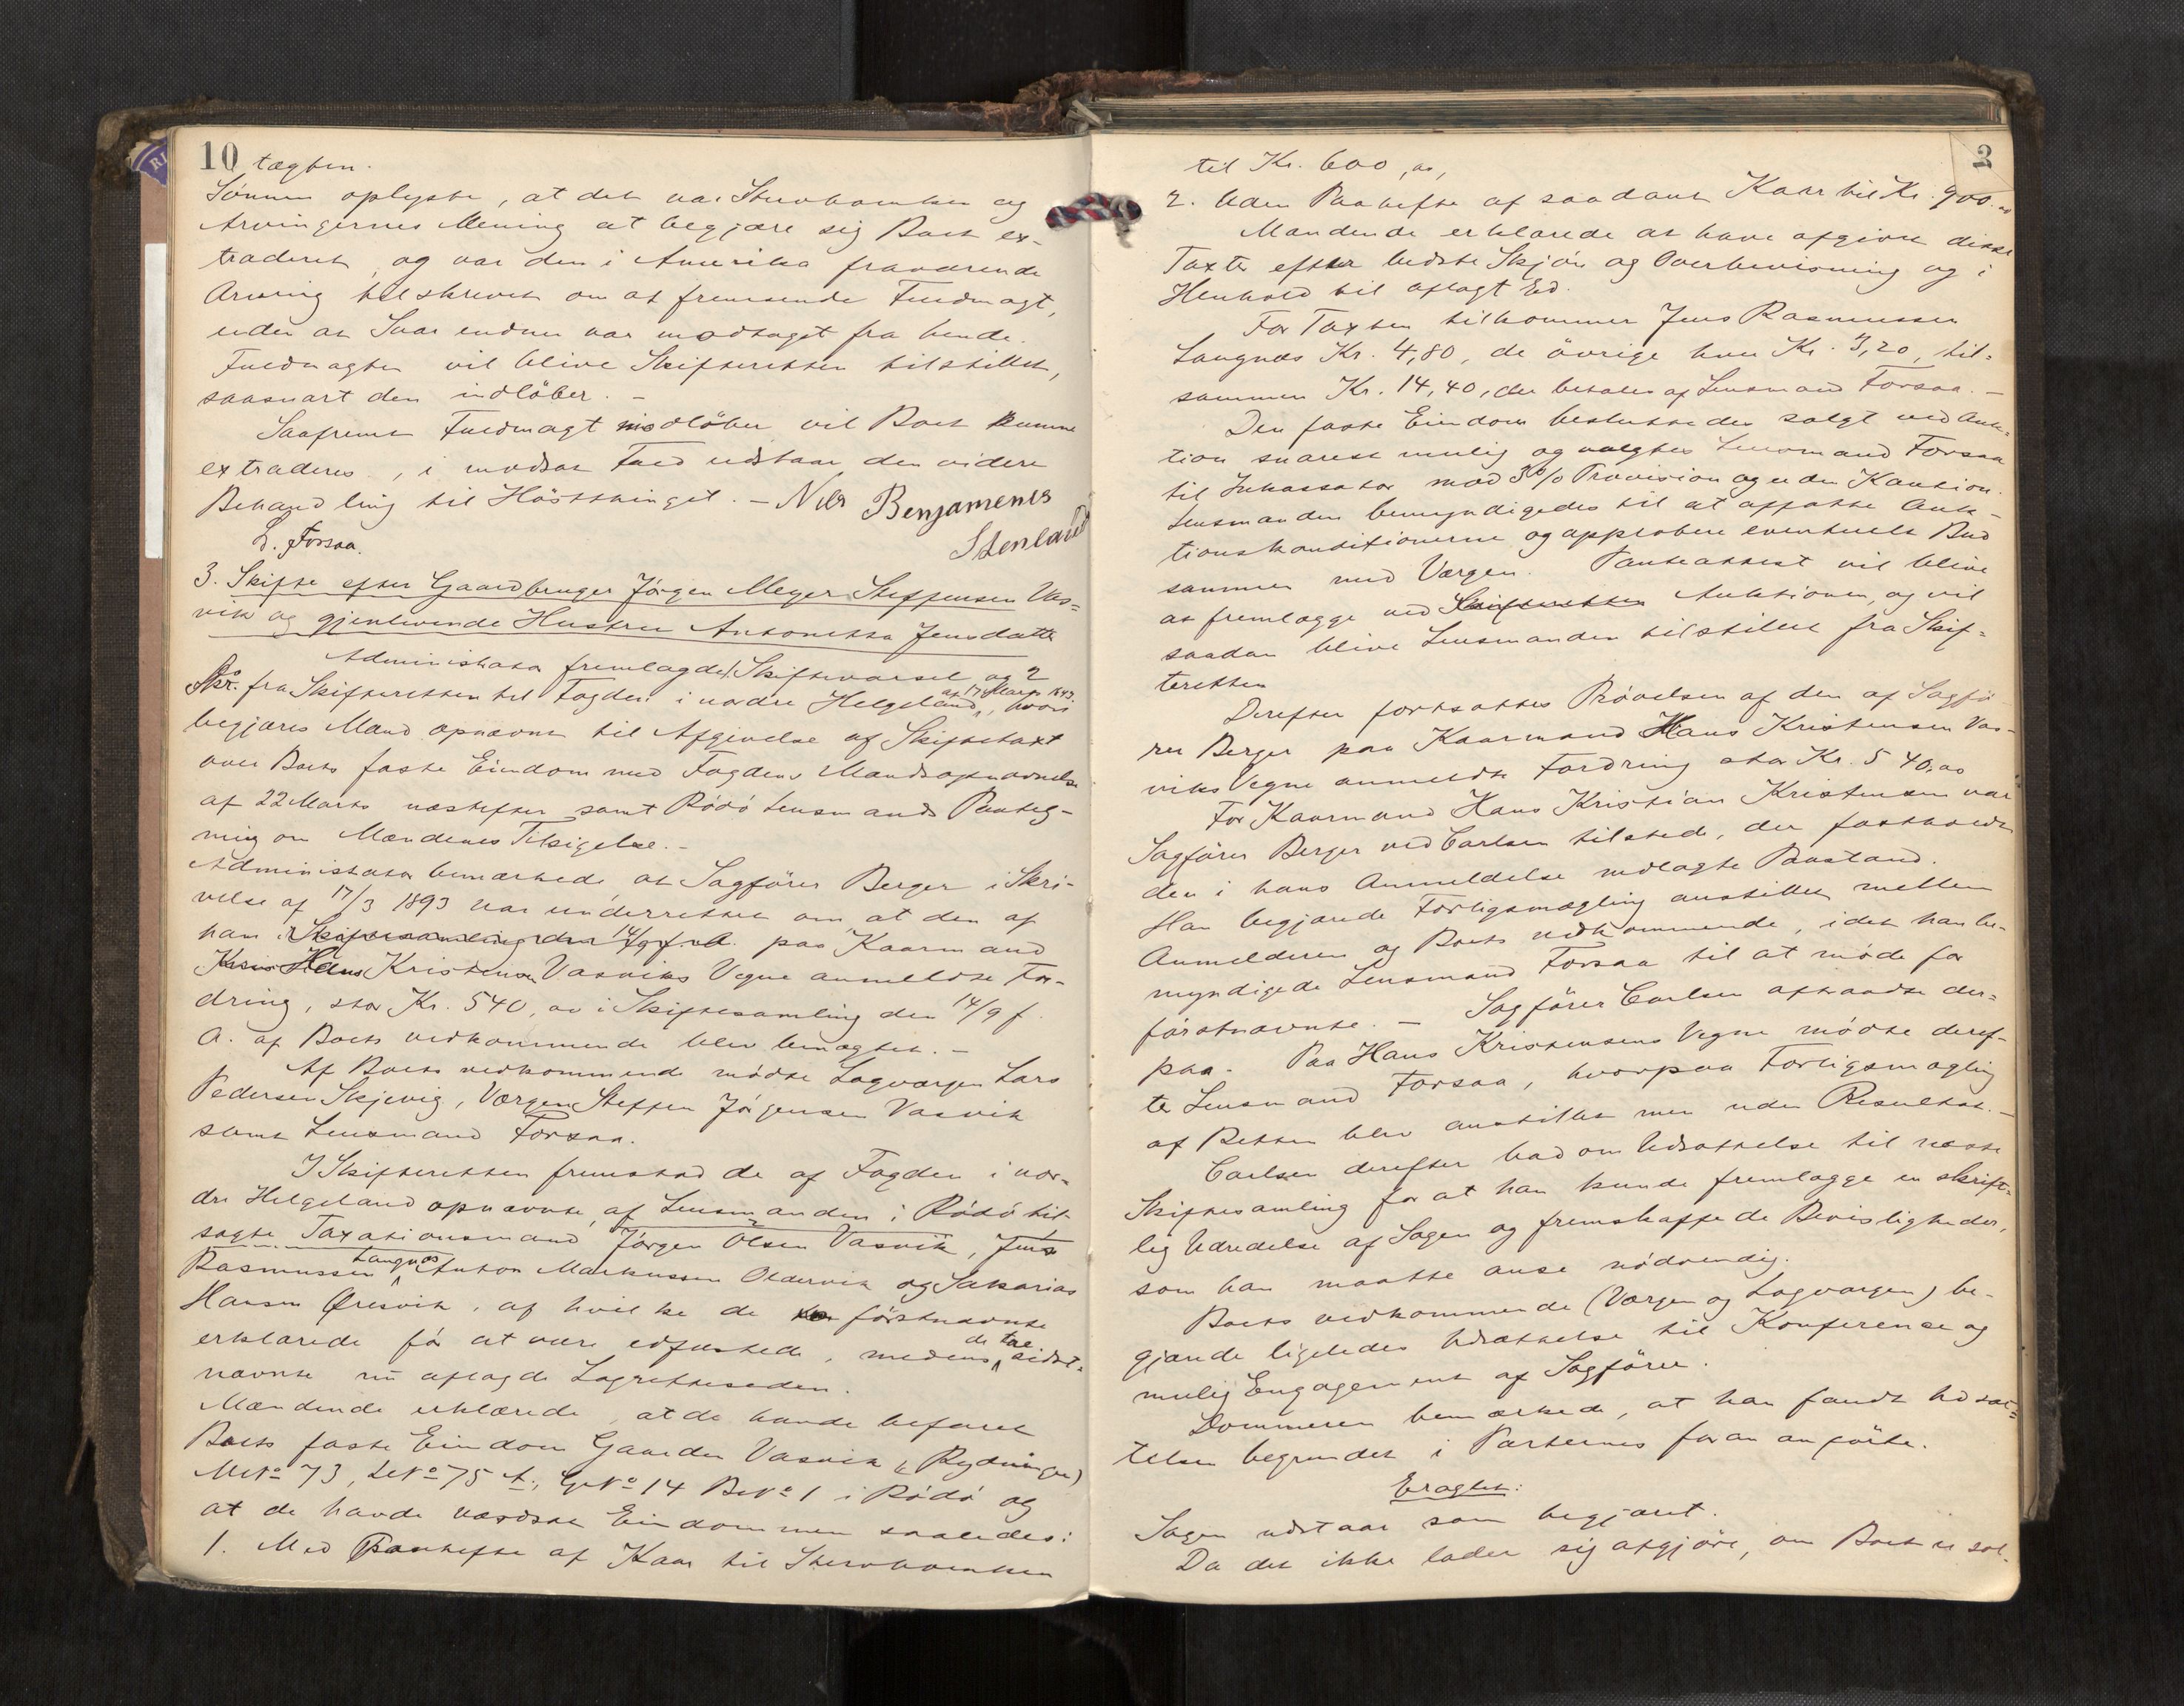 10 tægten.
Sønnen oplyste, at det var Stervboenken og
Arvingernes Mening at begjære sig Boet ex-
traderet, og var den i Amerika fraværende
Arving tilskrevet om at fremsende Fuldmagt,
uden at Svar endnu var modtaget fra hende.
Fuldmagten vil blive Skifteretten tilstillet,
saasnart den indløber. -
Saafremt Fuldmagt indløber vil Boet kunne
extraderes, i modsat Fald udstaar den videre
Behandling til Høstthinget. - Nils Benjamens
L. Forsaa. Stenland
3. Skifte efter Gaardbruger Jørgen Meyer Steffensen Vas-
vik og gjenlevende Hustru Antonetta Jensdatter
Administrator fremlagde 1. Skiftevarsel og 2
Skr. fra Skifteretten til Fogden i nordre Helgeland af 17 Marts 1893, hvori
begjæres Mænd opnævnt til Afgivelse af Skiftetaxt
over Boets faste Eiendom med Fogdens Mandsopnævnelse
af 22 Marts næstefter samt Rødø Lensmands Paateg-
ning om Mændenes Tilsigelse. -
Administrator bemærkede, at Sagfører Berger i Skri-
velse af 17/3 1893 var underrettet om, at den af
ham i Skiftesamling den 14/9 f. A. paa Kaarmand
Hans Kristensen Vasviks Vegne anmeldte For-
dring, stor Kr. 540,00 i Skiftesamling den 14/9 f.
A. af Boets vedkommende blev benægtet. -
Af Boets vedkommende mødte Lagværgen Lars
Pedersen Skjevig, Værgen Steffen Jørgensen Vasvik
samt Lensmand Forsaa.
I Skifteretten fremstod de af Fogden i nor-
dre Helgeland opnævnte, af Lensmanden i Rødø til-
sagte Taxationsmænd Jørgen Olsen Vasvik, Jens
Rasmussen Langnæs, Anton Markussen Oldervik og Sakarias
Hansen Øresvik, af hvilke de to førstnævnte
erklærede før at være edfæstede, medens de to sidst-
nævnte nu aflagde Lagretteseden.
Mændende erklærede, at de havde befaret
Boets faste Eiendom Gaarden Vasvik (Rydningen)
MNo 73, LNo 75 A, GNo 14 BNo 1 i Rødø og
at de havde værdsat Eiendommen saaledes:
1. Med Paahefte af Kaar til Stervboenken
2
til Kr. 600,00,
2. Uden Paahefte af saadant Kaar til Kr. 900.00
Mændende erklærede at have afgivet disse
Taxter efter bedste Skjøn og Overbevisning og i
Henhold til aflagt Ed.
For Taxten tilkommer Jens Rasmussen
Langnæs Kr. 4,80, de øvrige hver Kr. 3,20, til-
sammen Kr. 14,40, der betales af Lensmand Forsaa. -
Den faste Eiendom besluttedes solgt ved Auk-
tion snarest mulig og valgtes Lensmand Forsaa
til Inkassator mod 3% Provision og uden Kaution.
Lensmanden bemyndigedes til at affatte Auk-
tionskonditionerne og approbere eventuelt Bud
sammen med Værgen. Panteattest vil blive
at fremlægge ved Skifteretten Auktionen, og vil
saadan blive Lensmanden tilstillet fra Skif-
teretten
Derefter fortsattes Prøvelsen af den af Sagfø-
rer Berger paa Kaarmand Hans Kristensen Vas-
viks Vegne anmeldte Fordring stor Kr. 540,00
For Kaarmand Hans Kristian Kristensen var
Sagfører Berger ved Carlsen tilstede, der fastholdt
den i hans Anmeldelse nedlagte Paastand.
Han begjærede Forligsmægling anstillet mellem
Anmelderen og Boets vedkommende, idet han be-
myndigede Lensmand Forsaa til at møde for
førstnævnte. - Sagfører Carlsen afstaadte der-
paa. Paa Hans Kristensens Vegne mødte deref-
ter Lensmand Forsaa, hvorpaa Forligsmægling
af Retten blev anstillet men uden Resultat. -
Carlsen derefter bad om Udsættelse til næste
Skiftesamling for at han kunde fremlægge en skrift-
lig Udredelse af Sagen og fremskaffe de Bevisligheder,
som han maatte anse nødvendig.
Boets vedkommende (Værgen og Lagværgen) be-
gjærede ligeledes Udsættelse til Konference og
mulig Engagement af Sagfører.
Dommeren bemærkede, at han fandt Udsæt-
telsen begrundet i Parternes foran anførte.
Eragtet:
Sagen udstaar som begjært.
Da det ikke lader sig afgjøre, om Boet er sol-